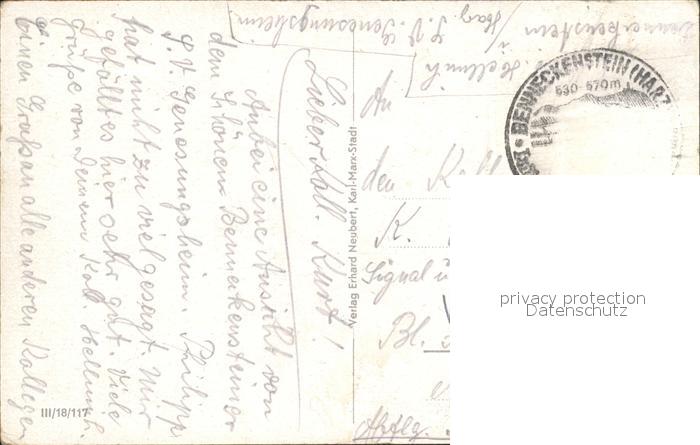 Lieber Koll. Kurt!
Anbei eine Ansicht von
dem schönen Benneckensteiner
S.V. Genesungsheim. Philipp
hat nicht zu viel gesagt. Mir
gefällt es hier sehr gut. Viele
Grüße von Deinem Koll. Hellmich.
einen Gruß an alle anderen Kollegen
Benneckenstein
Harz
S.V. Genesungsheim
Hellmich
Verlag Erhard Neubert, Karl-Marx-Stadt
III/18/117
BENNECKENSTEIN (HARZ
530-570m
An
den Koll
K.
Signal u
Bl.
privacy protection
Datenschutz